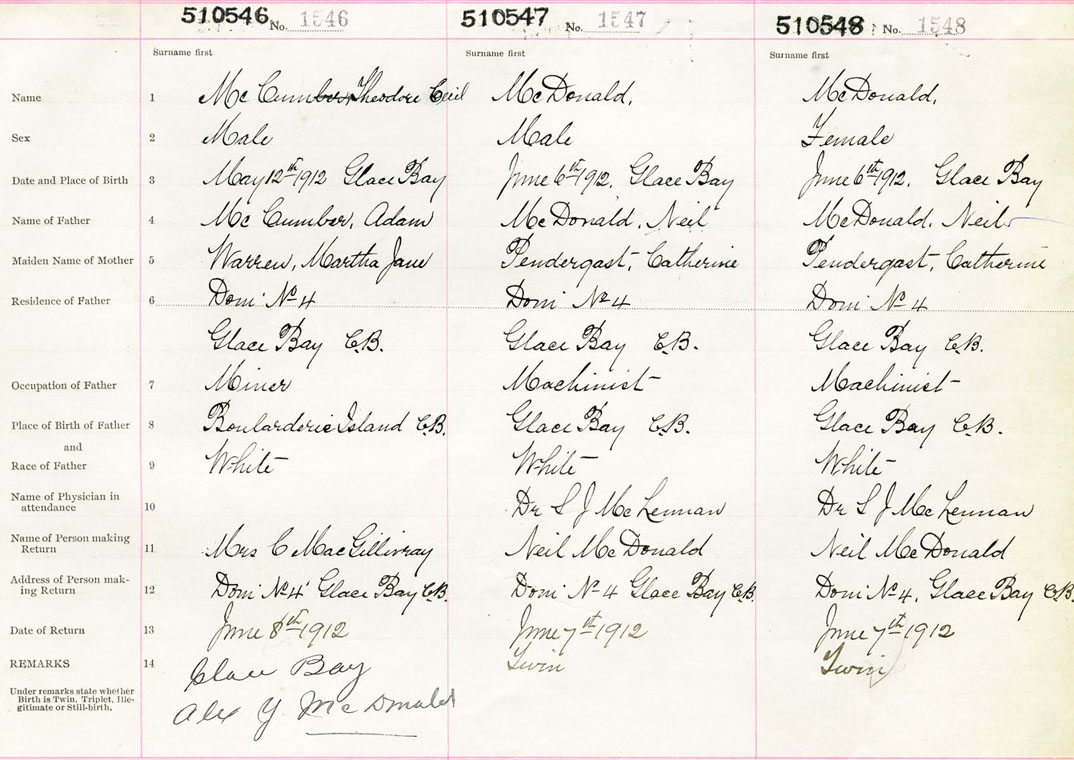 510546 No. 1546 510547 No. 1547 510548 No. 1548
Surname first Surname first Surname first
Name 1 McCumber, Theodore Cecil McDonald, McDonald,
Sex 2 Male Male Female
Date and Place of Birth 3 May 12th 1912 Glace Bay June 6th 1912. Glace Bay June 6th 1912. Glace Bay
Name of Father 4 McCumber, Adam McDonald, Neil McDonald, Neil
Maiden Name of Mother 5 Warren, Martha Jane Pendergast, Catherine Pendergast, Catherine
Residence of Father 6 Dom No 4 Dom No 4 Dom No 4
Glace Bay C.B. Glace Bay C.B. Glace Bay C.B.
Occupation of Father 7 Miner Machinist Machinist
Place of Birth of Father 8 Boularderie Island C.B. Glace Bay C.B. Glace Bay C.B.
and
Race of Father 9 White White White
Name of Physician in
attendance 10 Dr S J McLennan Dr S J McLennan
Name of Person making
Return 11 Mrs C MacGillivray Neil McDonald Neil McDonald
Address of Person mak-
ing Return 12 Dom No 4 Glace Bay C.B. Dom No 4 Glace Bay C.B. Dom No 4, Glace Bay C.B.
Date of Return 13 June 8th 1912 June 7th 1912 June 7th 1912
REMARKS 14 Glace Bay Twin Twin
Under remarks state whether
Birth is Twin, Triplet, Ille-
gitimate or Still-birth.
Alex Y. McDonald